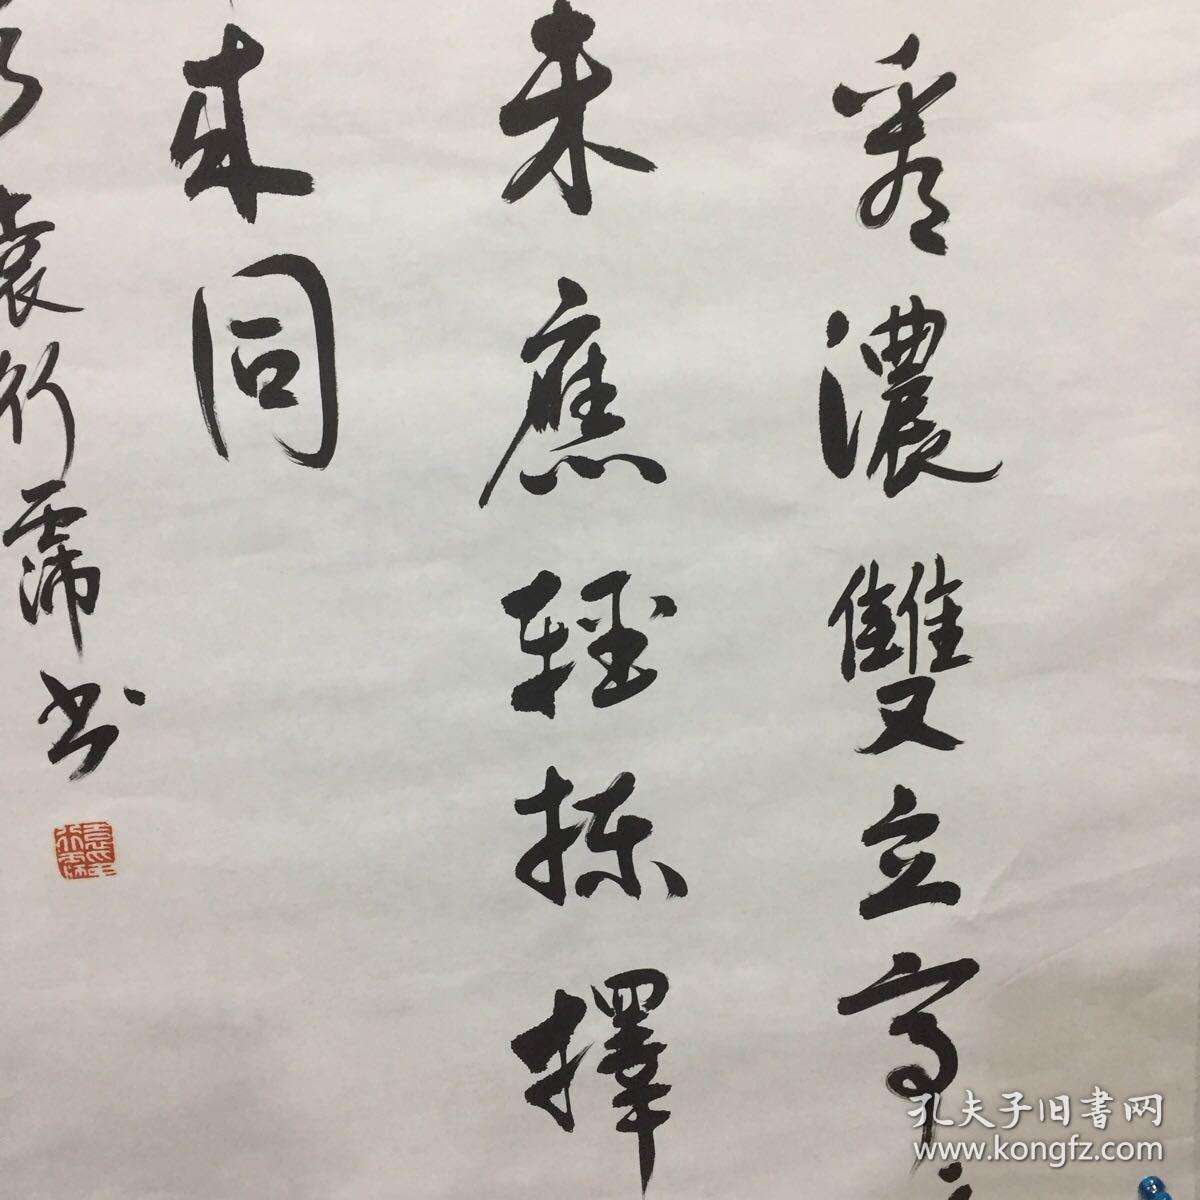 濃雙立亭
未應輕揀擇
來同
袁行霈书
孔夫子旧書网
www.kongfz.com